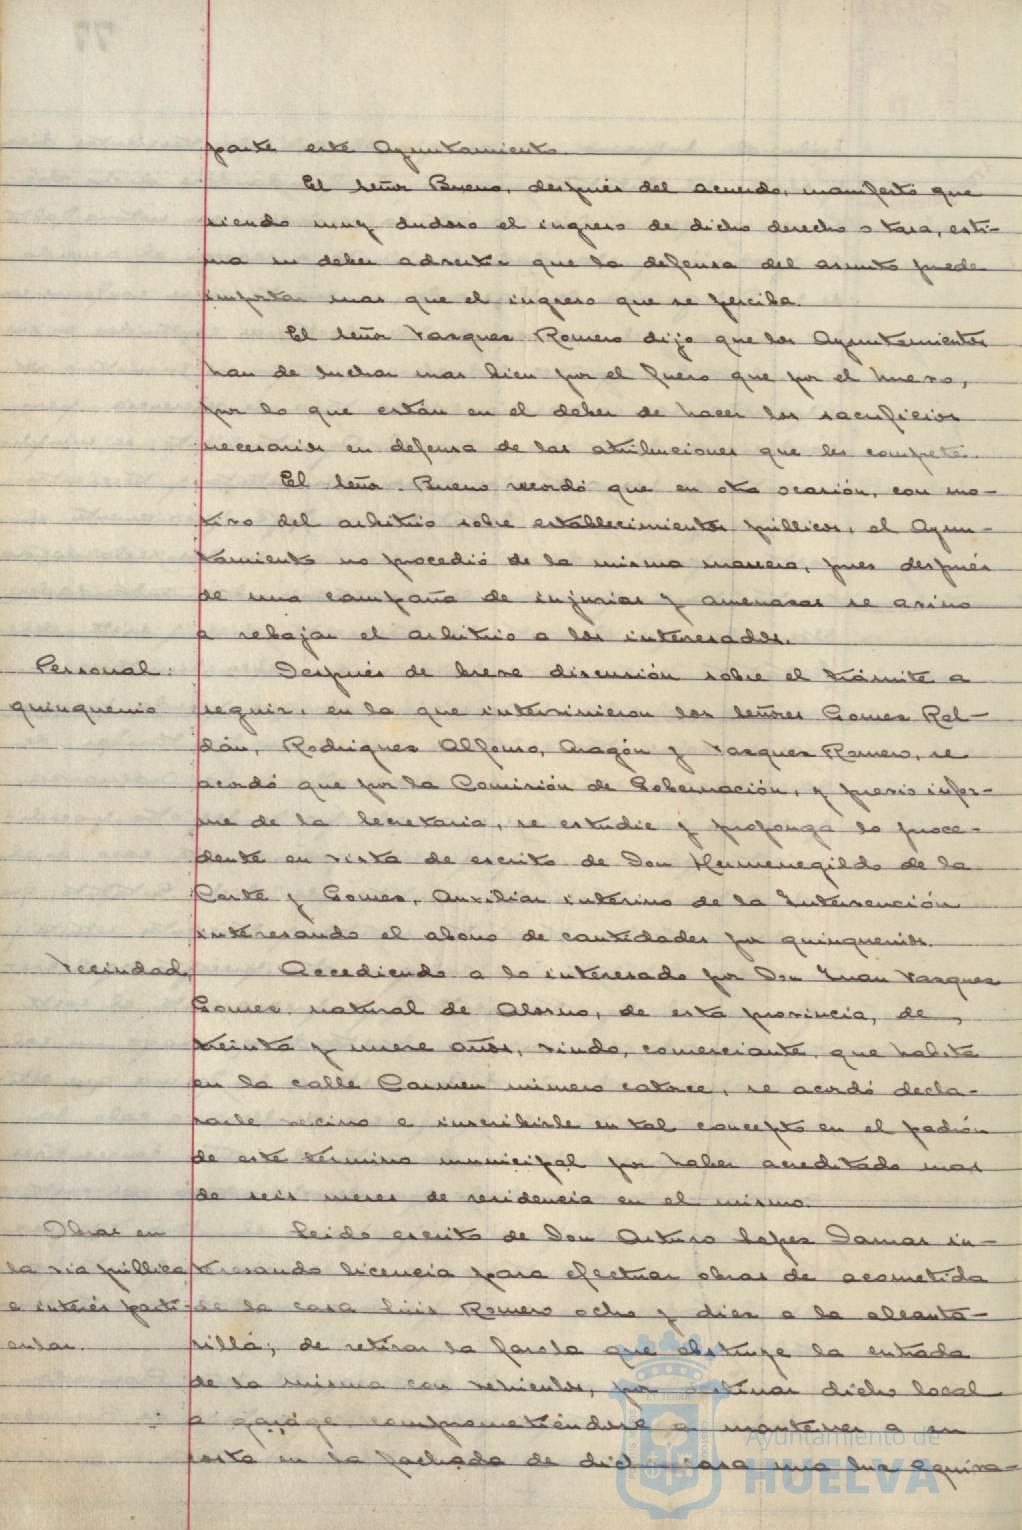 parte este Ayuntamiento.
El señor Bueno, después del acuerdo, manifestó que
siendo muy dudoso el ingreso de dicho derecho o tasa, esti-
ma su deber advertir que la defensa del asunto puede
importar mas que el ingreso que se perciba.
El señor Vazquez Romero dijo que los Ayuntamientos
han de luchar mas bien por el fuero que por el huevo,
por lo que están en el deber de hacer los sacrificios
necesarios en defensa de las atribuciones que les competen.
El señor Bueno recordó que en otra ocasión, con mo-
tivo del arbitrio sobre establecimientos públicos, el Ayun-
tamiento no procedió de la misma manera, pues después
de una campaña de injurias y amenazas se avino
a rebajar el arbitrio a los interesados.
Personal:
quinquenio
Después de breve discusión sobre el trámite a
seguir, en la que intervinieron los señores Gomez Rol-
dán, Rodriguez Alfonso, Aragón y Vazquez Romero, se
acordó que por la Comisión de Gobernación, y previo infor-
me de la Secretaria, se estudie y proponga lo proce-
dente en vista de escrito de Don Hermenegildo de la
Corte y Gomez, Auxiliar interino de la Intervención
interesando el abono de cantidades por quinquenios.
Vecindad
Accediendo a lo interesado por Don Juan Vazquez
Gomez natural de Alosno, de esta provincia, de
treinta y nueve años, viudo, comerciante, que habita
en la calle Carmen número catorce, se acordó decla-
rarle vecino e inscribirle en tal concepto en el padrón
de este término municipal por haber acreditado mas
de seis meses de residencia en el mismo.
Obras en
la via pública
a interés parti-
cular.
Leido escrito de Don Arturo Lopez Damas in-
teresando licencia para efectuar obras de acometida
de la casa Luis Romero ocho y diez a la alcanta-
rilla; de retirar la farola que obstruye la entrada
de la misma con vehiculos, por destinar dicho local
a garage comprometiéndose a mantener a su
costa en la fachada de dicha casa una luz equiva-
Ayuntamiento de
HUELVA